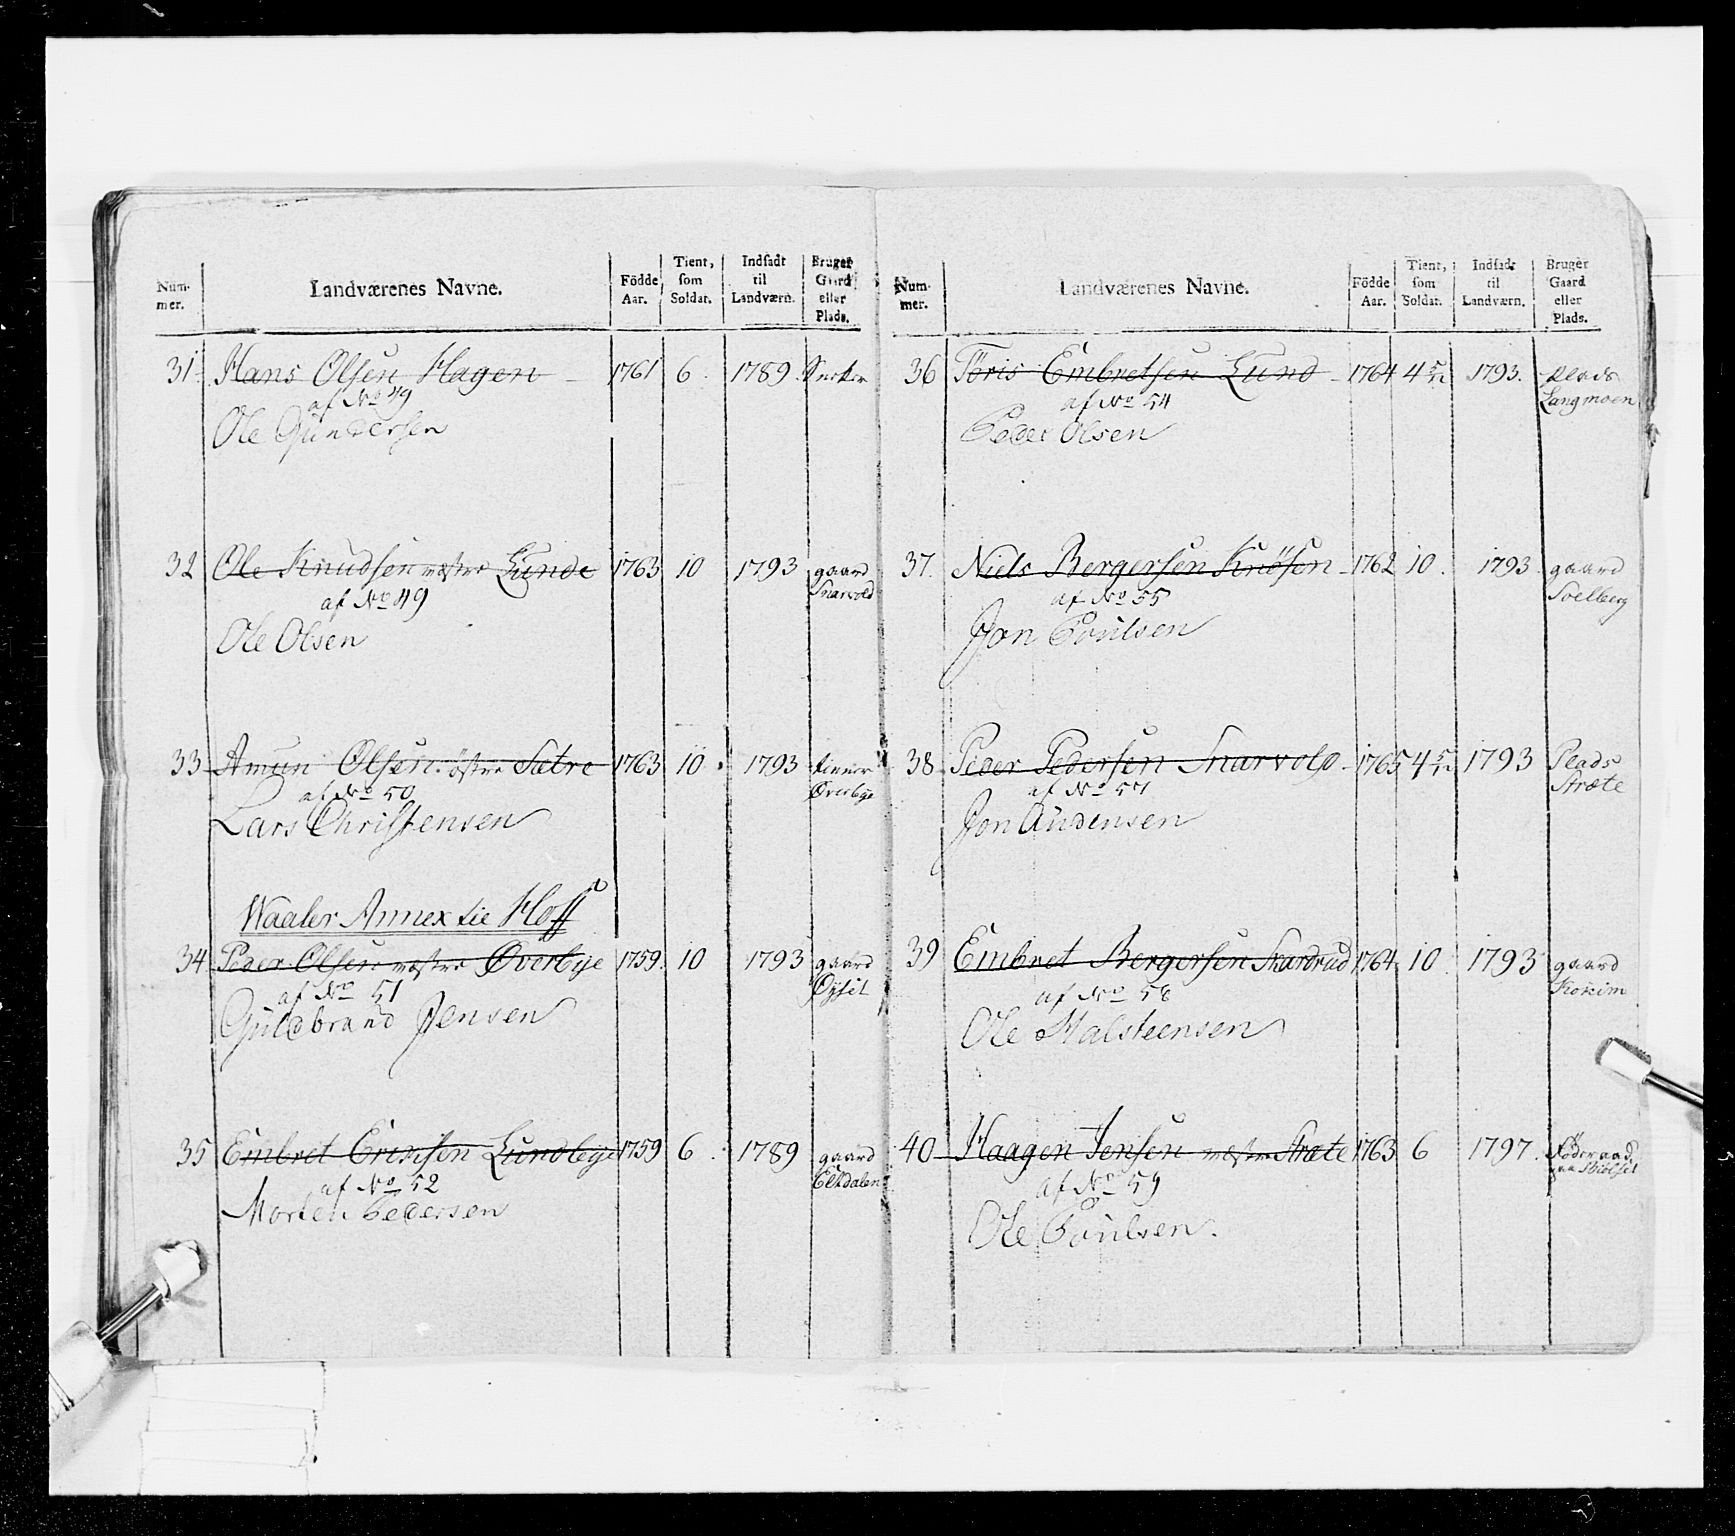 Num-
mer.
Landværenes Navne.
Födde
Aar.
Tient,
som
Soldat.
Indsadt
til
Landværn.
Bruger
Gaard
eller
Plads.
31 Hans Olsen Hagen 1761 6 1789
af No 49
Ole Gundersen
32 Ole Knudsen wæstre Lunde 1763 10 1793 gaard
Snarvold
af No 49
Ole Olsen
33 Amun Olsen östre Sætre 1763 10 1793
Overbye
af No 50
Lars Christensen
Waaler Annex til Hoff
34 Peder Olsen wæstre Øverbye 1759 10 1793 gaard
Øysit
af No 51
Guldbrand Jensen
35 Embret Erichsen Lundbye 1759 6 1789 gaard
Eltdalen
af No 52
Morten Pedersen
Num-
mer.
Landværenes Navne.
Födde
Aar.
Tient,
som
Soldat.
Indsadt
til
Landværn.
Bruger
Gaard
eller
Plads.
36 Töris Embretsen Lund 1764 4 5/12 1793. Plads
Langmoen
af No 54
Peder Olsen
37. Niels Bergersen Knösen 1762 10. 1793. gaard
Soelberg
af No 55
Jon Poulsen
38 Peder Pedersen Snarvold 1765 4 5/12 1793 Plads
Stræte
af No 57
Jon Audensen
39 Embret Bergersen Skardrud 1764 10 1793 gaard
af No 58
Ole Halsteensen
40 Haagen Jensen wæstre Stræte 1763 6 1797. Föderaad
paa
af No 59
Ole Poulsen.